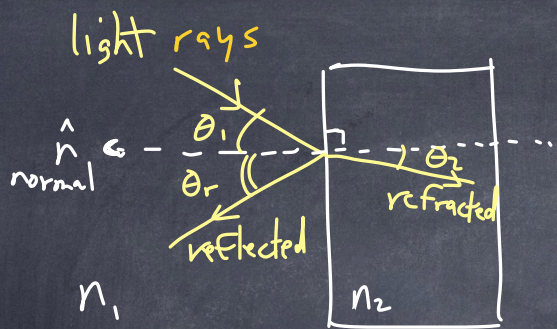 light rays
θ₁
n̂
normal
θr
θ₂
refracted
reflected
n₁
n₂